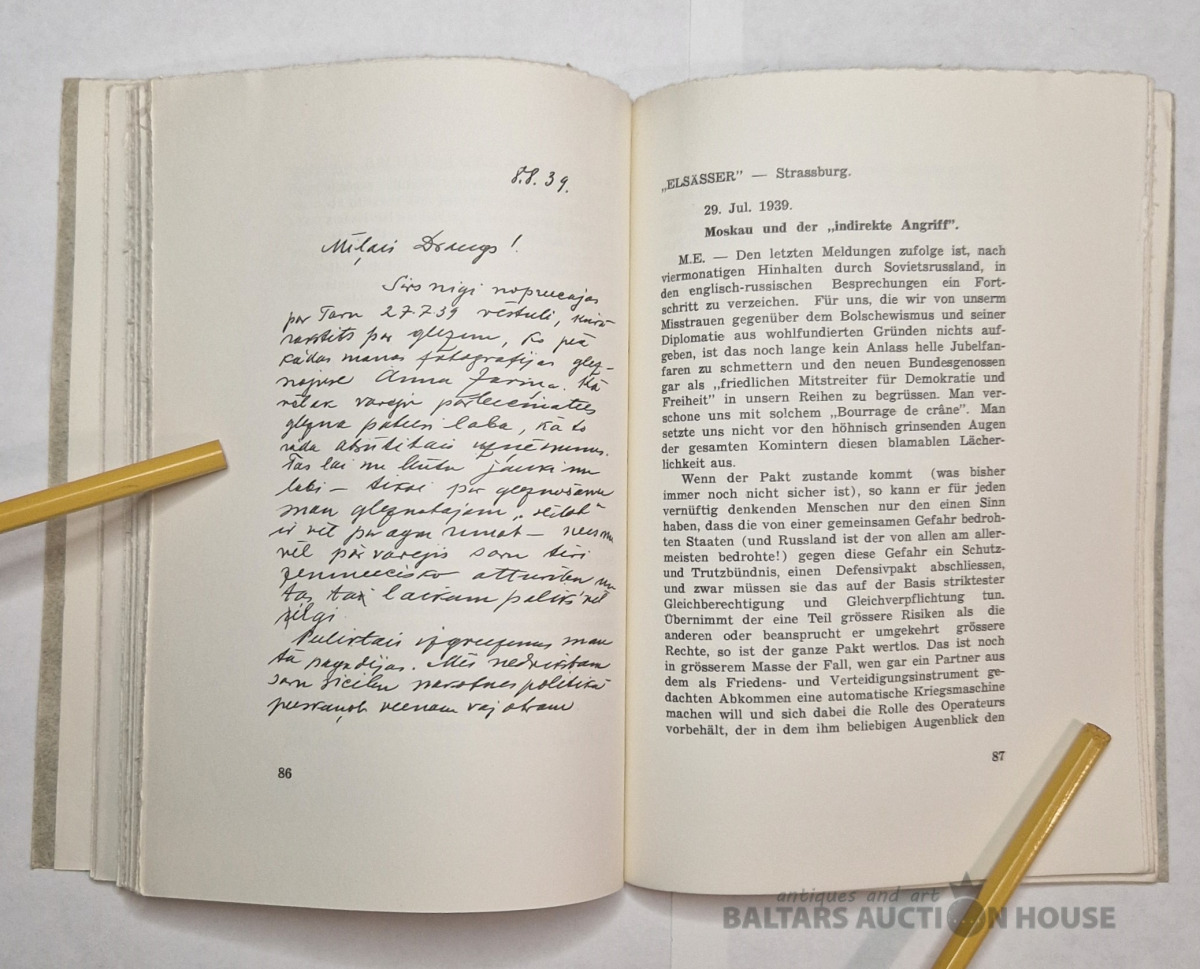 8.8.39.
Mīļais Draugs!
Sirsnīgi nopriecājos
par Tavu 27.7.39 vēstuli, kurā
rakstīts par gleznu, ko pēc
kādas manas fotografijas glez-
nojuse Anna Zariņa. Kā
vēlāk varēju pārliecināties
glezna patiesi laba, kā to
rāda atsūtītais uzņēmums.
Tas lai nu būtu jauki un
labi — tikai par gleznošanu
man gleznotājam
ir vēl par agru runāt — neesmu
vēl pārvarējis savu tīri
zemniecisko atturību un
tas tā laikam paliks vēl
ilgi.
Pulistais izgriezums man
tā sagādījās. Mēs nedrīkstam
savu sīciņu nākotnes politikā
pieskaņot vienam vaj otram
86
„ELSÄSSER" — Strassburg.
29. Jul. 1939.
Moskau und der „indirekte Angriff".
M.E. — Den letzten Meldungen zufolge ist, nach
viermonatigen Hinhalten durch Sovietsrussland, in
den englisch-russischen Besprechungen ein Fort-
schritt zu verzeichen. Für uns, die wir von unserm
Misstrauen gegenüber dem Bolschewismus und seiner
Diplomatie aus wohlfundierten Gründen nichts auf-
geben, ist das noch lange kein Anlass helle Jubelfan-
faren zu schmettern und den neuen Bundesgenossen
gar als „friedlichen Mitstreiter für Demokratie und
Freiheit" in unsern Reihen zu begrüssen. Man ver-
schone uns mit solchem „Bourrage de crâne". Man
setzte uns nicht vor den höhnisch grinsenden Augen
der gesamten Komintern diesen blamablen Lächer-
lichkeit aus.
Wenn der Pakt zustande kommt (was bisher
immer noch nicht sicher ist), so kann er für jeden
vernüftig denkenden Menschen nur den einen Sinn
haben, dass die von einer gemeinsamen Gefahr bedroh-
ten Staaten (und Russland ist der von allen am aller-
meisten bedrohte!) gegen diese Gefahr ein Schutz-
und Trutzbündnis, einen Defensivpakt abschliessen,
und zwar müssen sie das auf der Basis striktester
Gleichberechtigung und Gleichverpflichtung tun.
Übernimmt der eine Teil grössere Risiken als die
anderen oder beansprucht er umgekehrt grössere
Rechte, so ist der ganze Pakt wertlos. Das ist noch
in grösserem Masse der Fall, wen gar ein Partner aus
dem als Friedens- und Verteidigungsinstrument ge-
dachten Abkommen eine automatische Kriegsmaschine
machen will und sich dabei die Rolle des Operateurs
vorbehält, der in dem ihm beliebigen Augenblick den
87
antiques and art
BALTARS AUCTION HOUSE